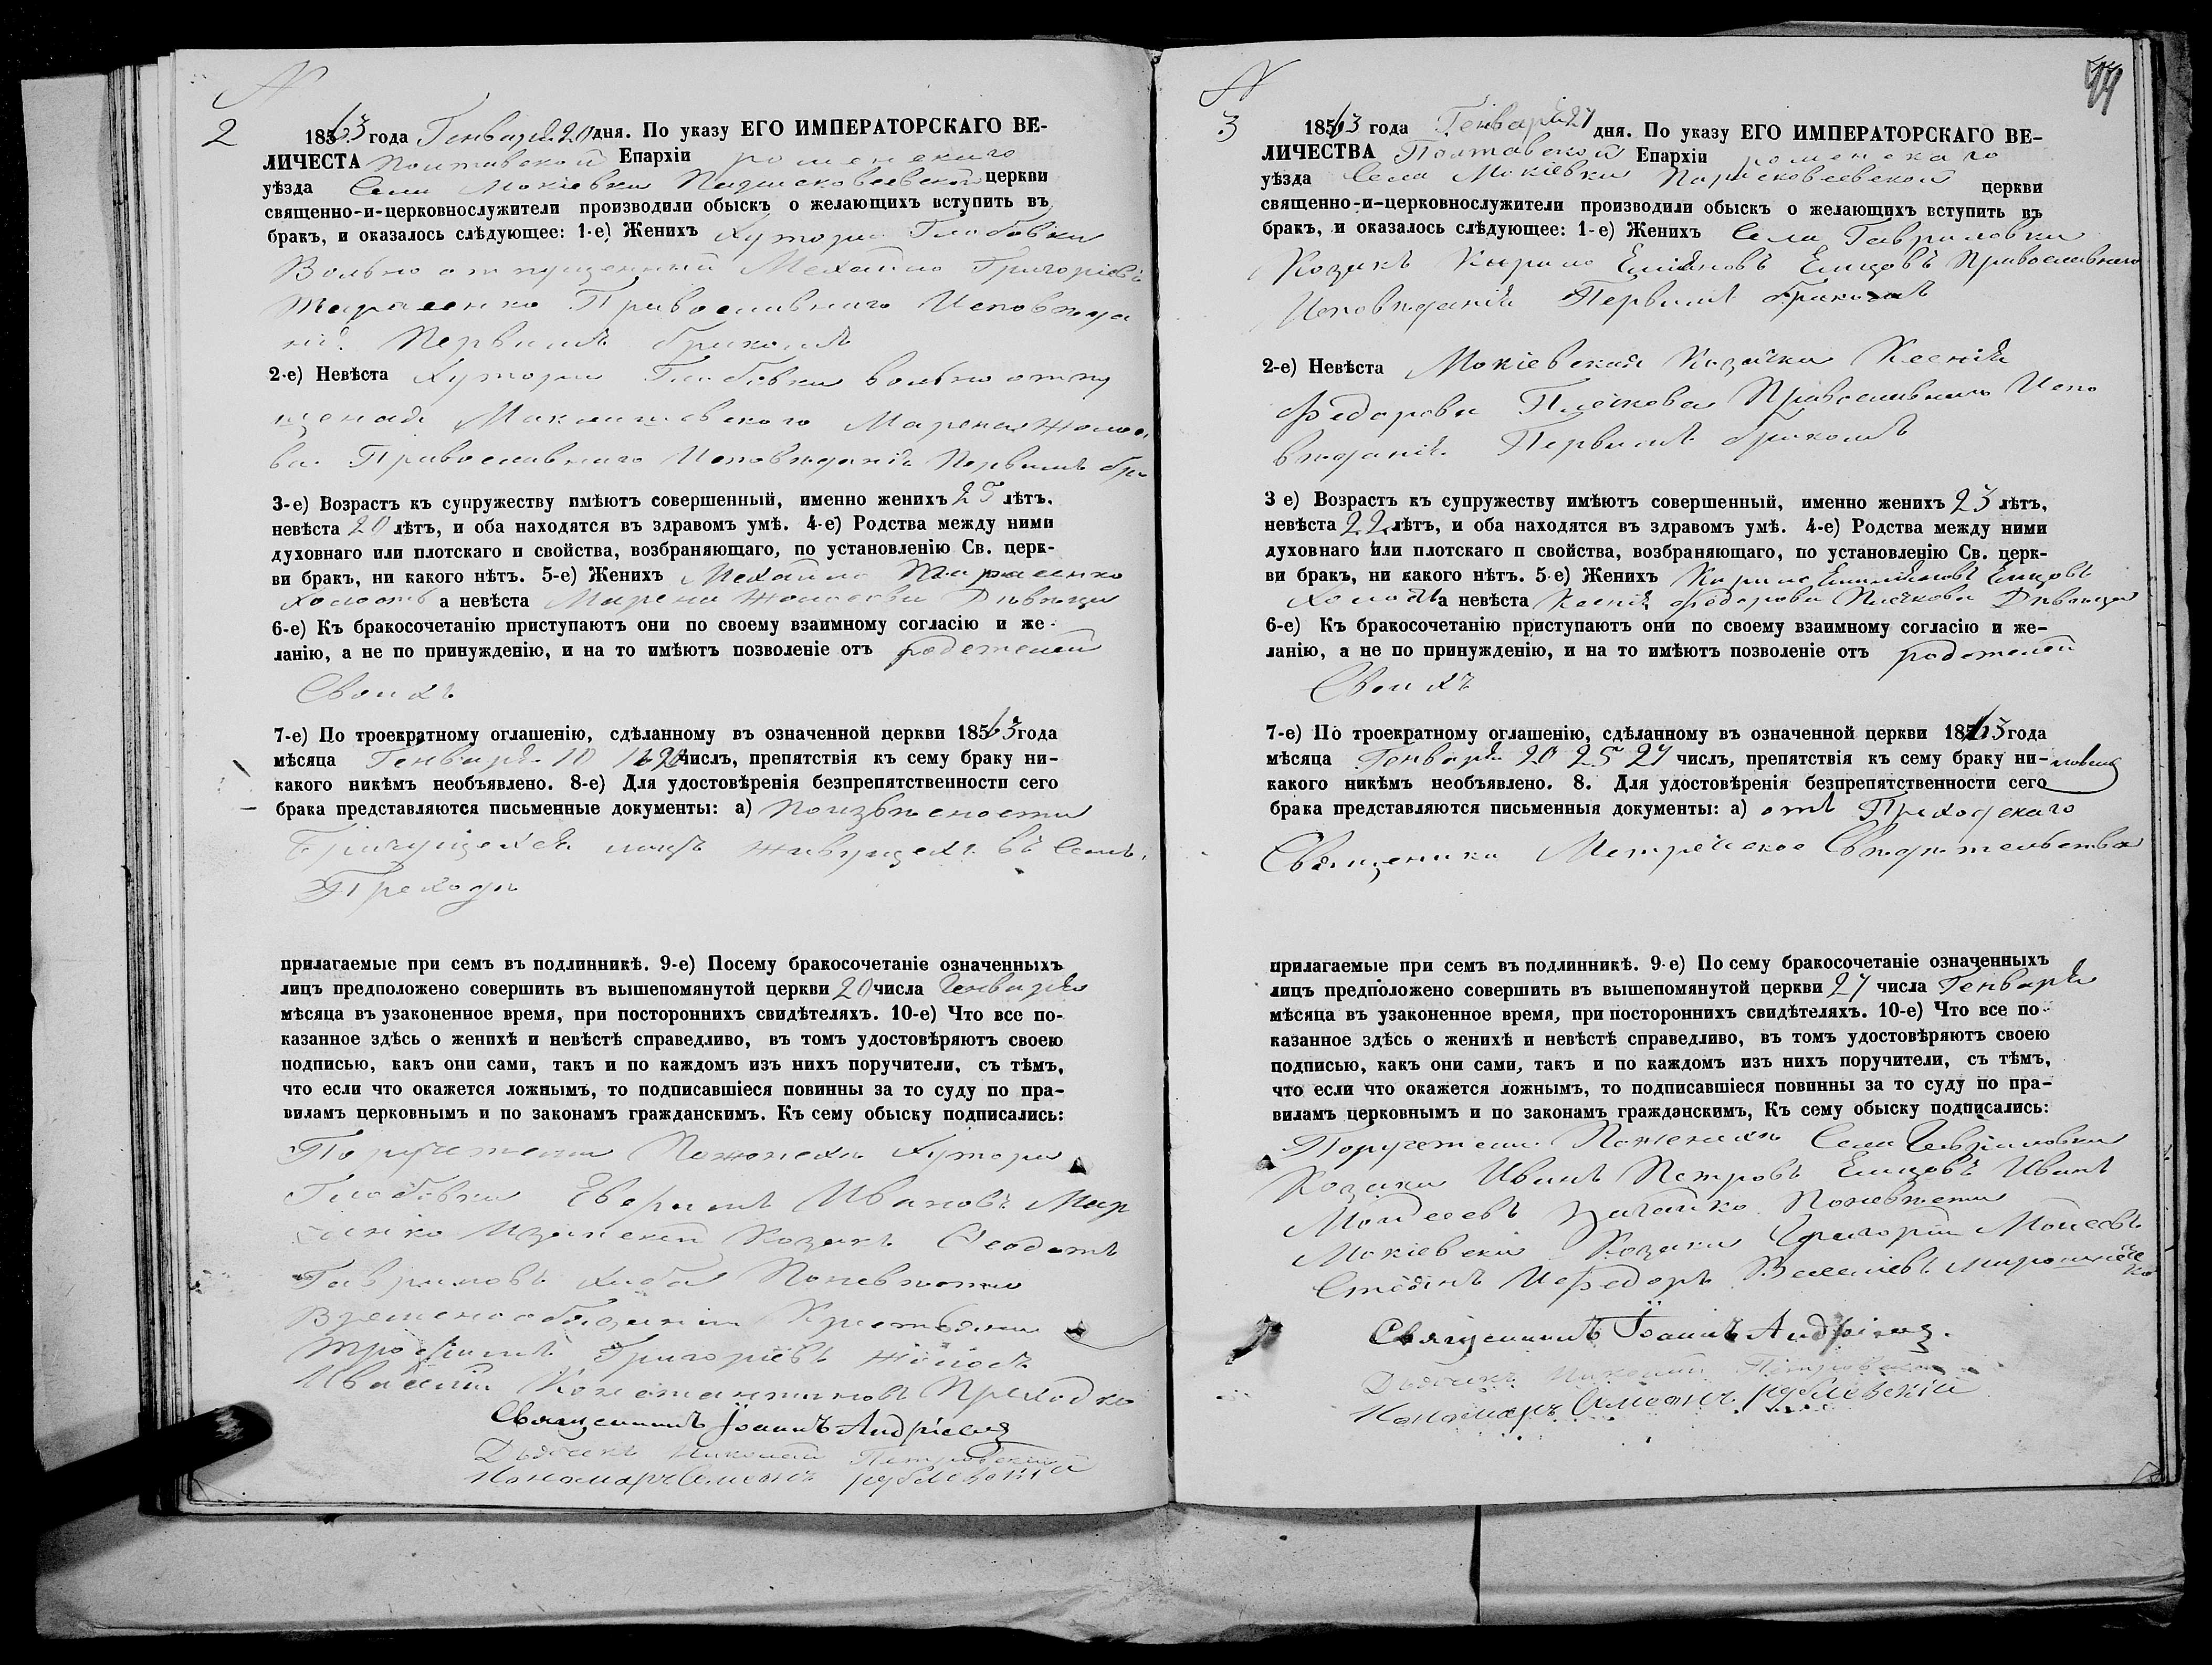 N
2
1863 года Генваря 20 дня. По указу ЕГО ИМПЕРАТОРСКАГО ВЕ-
ЛИЧЕСТА Полтавской Епархіи роменскаго
уѣзда Села Мокіевки Парасковеевской церкви
священно-и-церковнослужители производили обыскъ о желающихъ вступить въ
бракъ, и оказалось слѣдующее: 1-е) Женихъ Хутора
Вольно отпущенный Михайло Григоріевъ
Тарасенко Православнаго Исповѣда
нія Первымъ бракомъ
2-е) Невѣста Хутора вольно отпу
щеная Марена
ва Православнаго Исповѣданія Первымъ бра
3-е) Возрастъ къ супружеству имѣютъ совершенный, именно женихъ 25 лѣтъ,
невѣста 20 лѣтъ, и оба находятся въ здравомъ умѣ. 4-е) Родства между ними
духовнаго или плотскаго и свойства, возбраняющаго, по установленію Св. церк-
ви бракъ, ни какого нѣтъ. 5-е) Женихъ Михайло Тарасенко
холостъ а невѣста Марена Девица
6-е) Къ бракосочетанію приступаютъ они по своему взаимному согласію и же-
ланію, а не по принужденію, и на то имѣютъ позволеніе отъ родетелей
Своихъ
7-е) По троекратному оглашенію, сдѣланному въ означенной церкви 1863 года
мѣсяца Генваря числъ, препятствія къ сему браку ни-
какого никѣмъ необъявлено. 8-е) Для удостовѣренія безпрепятственности сего
брака представляются письменные документы: а) Поизвѣсности
лицъ живущехъ въ Семъ
Преходѣ
прилагаемыс при семъ въ подлинникѣ. 9-е) Посему бракосочетаніе означенныхъ
лицъ предположено совершить въ вышепомянутой церкви 20 числа Генваря
мѣсяца въ узаконенное время, при постороннихъ свидѣтеляхъ. 10-е) Что все по-
казанное здѣсь о женихѣ и невѣстѣ справедливо, въ томъ удостовѣряютъ своею
подписью, какъ они сами, такъ и по каждомъ изъ нихъ поручители, съ тѣмъ,
что если что окажется ложнымъ, то подписавшіеся повинны за то суду по пра-
виламъ церковнымъ и по законамъ гражданскимъ. Къ сему обыску подписались:
Поручетели Поженехѣ Хутора
Ивановъ
Козакъ Феодотъ
Гавриловъ Поневѣсти
Временообязании Крестьяни
Трофимъ Григоріевъ
Ивасілій Константиновъ Преходко
Священникъ Іоаннъ Андріевц
Дьячекъ Николай Петровскій
Пономарь Симеонъ рублевскій
N
3
94
1863 года Генваря 27 дня. По указу ЕГО ИМПЕРАТОРСКАГО ВЕ-
ЛИЧЕСТВА Полтавской Епархіи роменскаго
уѣзда Села Мокіевки Парасковеевской церкви
священно-и-церковнослужители производили обыскъ о желающихъ вступить въ
бракъ, и оказалось слѣдующее: 1-е) Женихъ Села Гавриловки
Козакъ Кирило Емцовъ Православнаго
Исповѣданія Первымъ бракомъ
2-е) Невѣста Мокіевская Козачка Ксенія
Федорова Православнаго Испо
вѣданія Первымъ бракомъ
3 е) Возрастъ къ супружеству имѣютъ совершенный, именно женихъ 23 лѣтъ,
невѣста 22 лѣтъ, и оба находятся въ здравомъ умѣ. 4-е) Родства между ними
духовнаго или плотскаго п свойства, возбраняющаго, по установленію Св. церк-
ви бракъ, ни какого нѣтъ. 5-е) Женихъ Кирило Емцовъ
холостъ а невѣста Ксенія Федорова Девица
6-е) Къ бракосочетанію приступаютъ они по своему взаимному согласію и же-
ланію, а не по принужденію, и на то имѣютъ позволеніе отъ родетелей
Своихъ
7-е) По троекратному оглашенію, сдѣланному въ означенной церкви 1863 года
мѣсяца Генваря 20 25 27 числъ, препятствія къ сему браку ни-
какого никѣмъ необъявлено. 8. Для удостовѣренія безпрепятственности сего
брака представляются письменныя документы: а) отъ Преходскаго
Священика Метреческое Свидѣтельство
прилагаемые при семъ въ подлинникѣ. 9-е) По сему бракосочетаніе означенныхъ
лицъ предположено совершить въ вышепомянутой церкви 27 числа Генваря
мѣсяца въ узаконенное время, при постороннихъ свидѣтеляхъ. 10-е) Что все по-
казанное здѣсь о женихѣ и невѣстѣ справедливо, въ томъ удостовѣряютъ своею
подписью, какъ они сами, такъ и по каждомъ изъ нихъ поручители, съ тѣмъ,
что если что окажется ложнымъ, то подписавшіеся повинны за то суду по пра-
виламъ церковнымъ и по законамъ гражданскимъ, Къ сему обыску подписались:
Поручетели Поженехѣ Села Гавриловки
Козаки Иванъ Петровъ Емцовъ Иванъ
Моисеевъ Поневѣсти
Мокіевскія Козаки Григорій Моисеевъ
Федоръ Васелиевъ
Священникъ Іоаннъ Андріевц.
Дьячекъ Николай Петровскій
Пономарь Симеонъ рублевскій